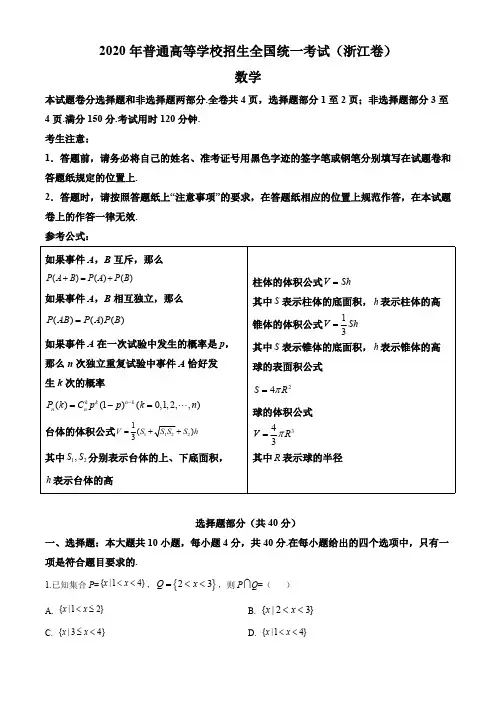 2020 年普通高等学校招生全国统一考试（浙江卷）
数学
本试题卷分选择题和非选择题两部分.全卷共 4 页，选择题部分 1 至 2 页；非选择题部分 3 至
4 页.满分 150 分.考试用时 120 分钟.
考生注意：
1．答题前，请务必将自己的姓名、准考证号用黑色字迹的签字笔或钢笔分别填写在试题卷和
答题纸规定的位置上.
2．答题时，请按照答题纸上“注意事项”的要求，在答题纸相应的位置上规范作答，在本试题
卷上的作答一律无效.
参考公式：
如果事件 A，B 互斥，那么
P(A+B)=P(A)+P(B)
如果事件 A，B 相互独立，那么
P(AB)=P(A)P(B)
如果事件 A 在一次试验中发生的概率是 p，
那么 n 次独立重复试验中事件 A 恰好发
生 k 次的概率
Pₙ(k)=Cₙᵏpᵏ(1−p)ⁿ⁻ᵏ(k=0,1,2,⋯,n)
台体的体积公式 V=1/3(S₁+√(S₁S₂)+S₂)h
其中 S₁,S₂ 分别表示台体的上、下底面积，
h 表示台体的高
柱体的体积公式 V=Sh
其中 S 表示柱体的底面积，h 表示柱体的高
锥体的体积公式 V=1/3Sh
其中 S 表示锥体的底面积，h 表示锥体的高
球的表面积公式
S=4πR²
球的体积公式
V=4/3πR³
其中 R 表示球的半径
选择题部分（共 40 分）
一、选择题：本大题共 10 小题，每小题 4 分，共 40 分.在每小题给出的四个选项中，只有一
项是符合题目要求的.
1.已知集合 P={x|1<x<4}，Q={2<x<3}，则 P⋂Q=（ ）
A. {x|1<x≤2} B. {x|2<x<3}
C. {x|3≤x<4} D. {x|1<x<4}